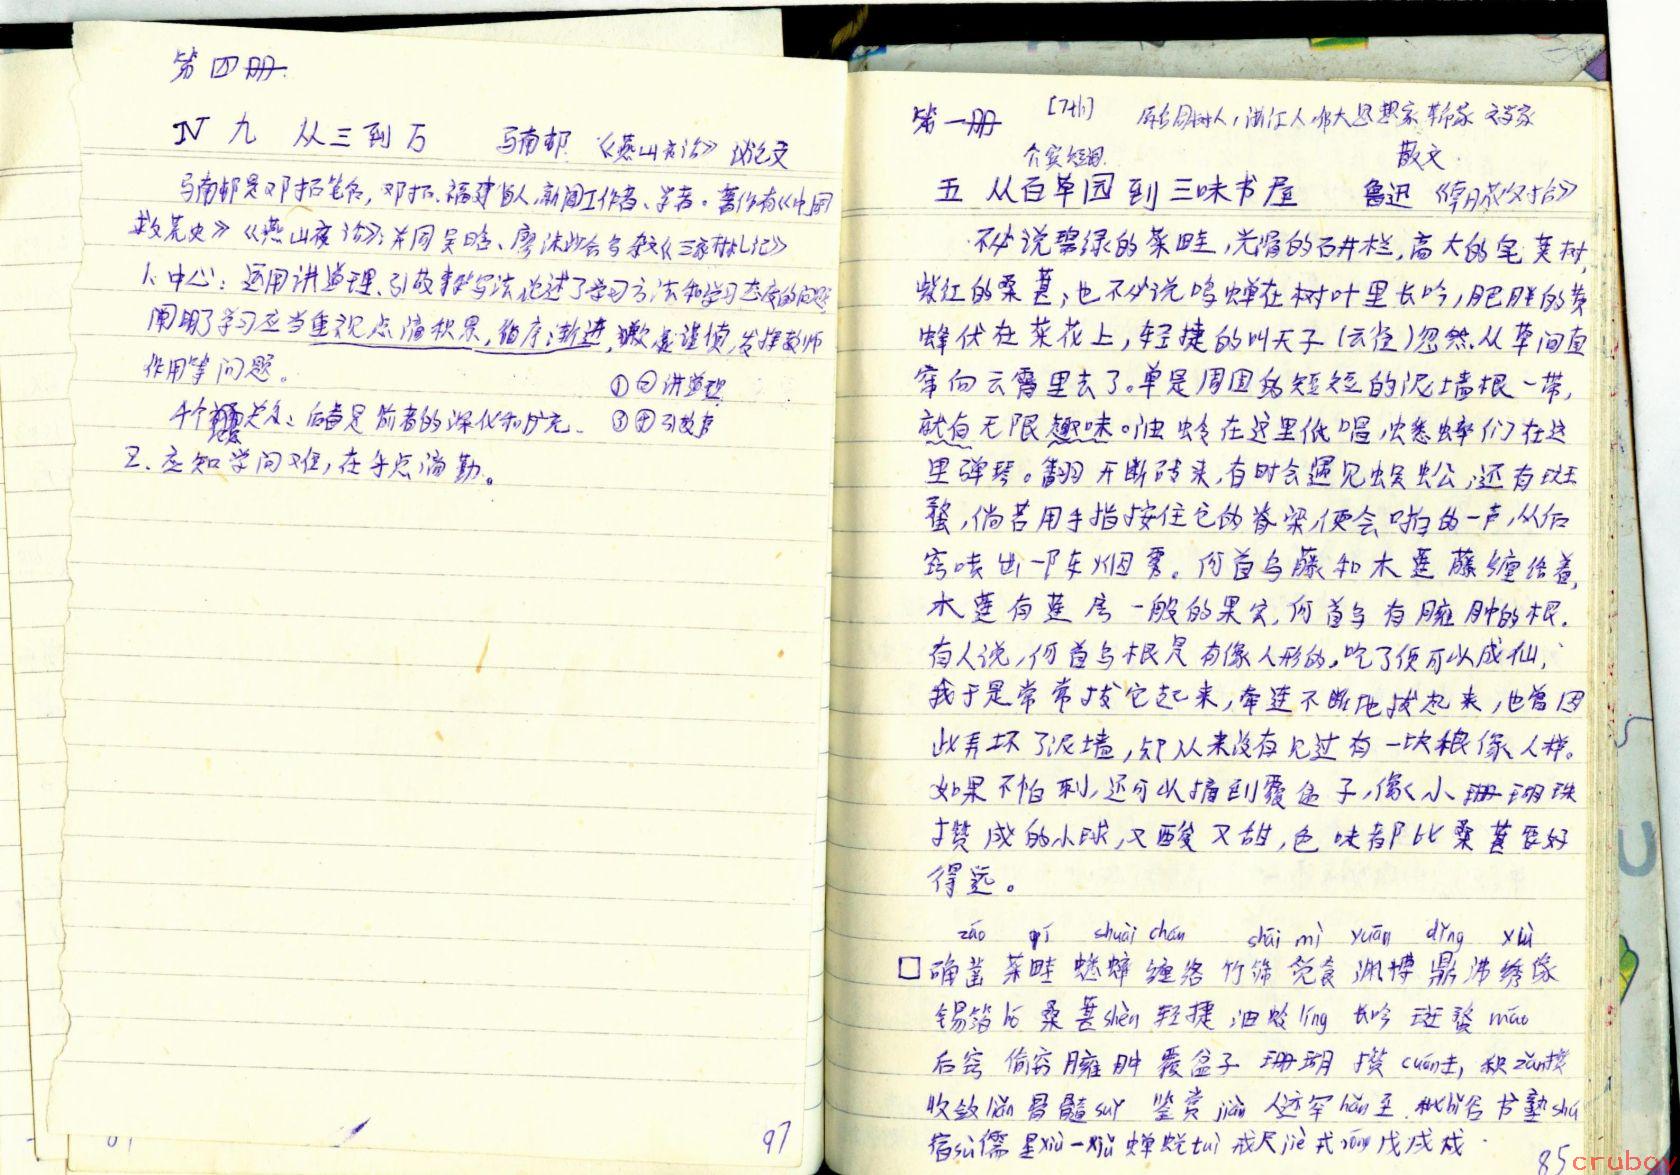 第四册
IV 九 从三到万 马南邨 《燕山夜话》 议论文
马南邨是邓拓笔名，邓拓，福建省人，新闻工作者、学者。著作有《中国
救荒史》《燕山夜话》；并同吴晗、廖沫沙合写杂文《三家村札记》
1. 中心：运用讲道理、引故事等写法论述了学习方法和学习态度的问题
阐明了学习应当重视点滴积累，循序渐进，谨慎，发挥教师
作用等问题。
① 二 讲道理
4个关系：后者是前者的深化和扩充. ③ 四 引故事
2. 应知学问难，在乎点滴勤。
97
第一册 [7th] 原名周树人，浙江人，伟大思想家 革命家 文学家
散文.
五 从百草园到三味书屋 鲁迅《朝花夕拾》
不必说碧绿的菜畦，光滑的石井栏，高大的皂荚树，
紫红的桑葚；也不必说鸣蝉在树叶里长吟，肥胖的黄
蜂伏在菜花上，轻捷的叫天子（云雀）忽然从草间直
窜向云霄里去了。单是周围的短短的泥墙根一带，
就有无限趣味。油蛉在这里低唱，蟋蟀们在这
里弹琴。翻开断砖来，有时会遇见蜈蚣；还有斑
蝥，倘若用手指按住它的脊梁，便会啪的一声，从后
窍喷出一阵烟雾。何首乌藤和木莲藤缠络着，
木莲有莲房一般的果实，何首乌有臃肿的根．
有人说，何首乌根是有像人形的，吃了便可以成仙，
我于是常常拔它起来，牵连不断地拔起来，也曾因
此弄坏了泥墙，却从来没有见过有一块根像人样。
如果不怕刺，还可以摘到覆盆子，像小珊瑚珠
攒成的小球，又酸又甜，色味都比桑葚要好
得远。
záo qí shuài chán shāi mì yuān dǐng xiù
□ 确凿 菜畦 蟋蟀 缠络 竹筛 觅食 渊博 鼎沸 绣像
锡箔 bó 桑葚 shèn 轻捷 油蛉 líng 长吟 斑蝥 máo
后窍 臃肿 覆盆子 珊瑚 攒 cuán 积 zǎn 攒
收敛 liǎn 骨髓 suǐ 鉴赏 jiàn 人迹罕 hǎn 至 书塾 shú
宿 sù 儒 星 xiù 一 xiǔ 蝉蜕 tuì 戒尺 jiè 戎 róng 戊戌戍
85
cruboy